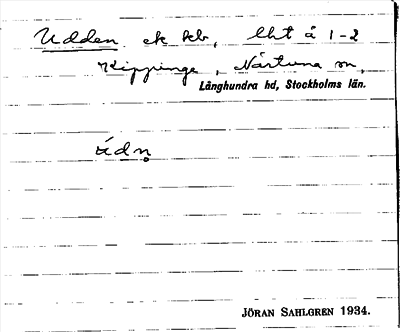 Udden ek kb, lht å 1-2
Kippinge, Närtuna sn,
Långhundra hd, Stockholms län.
 údn̥
JÖRAN SAHLGREN 1934.